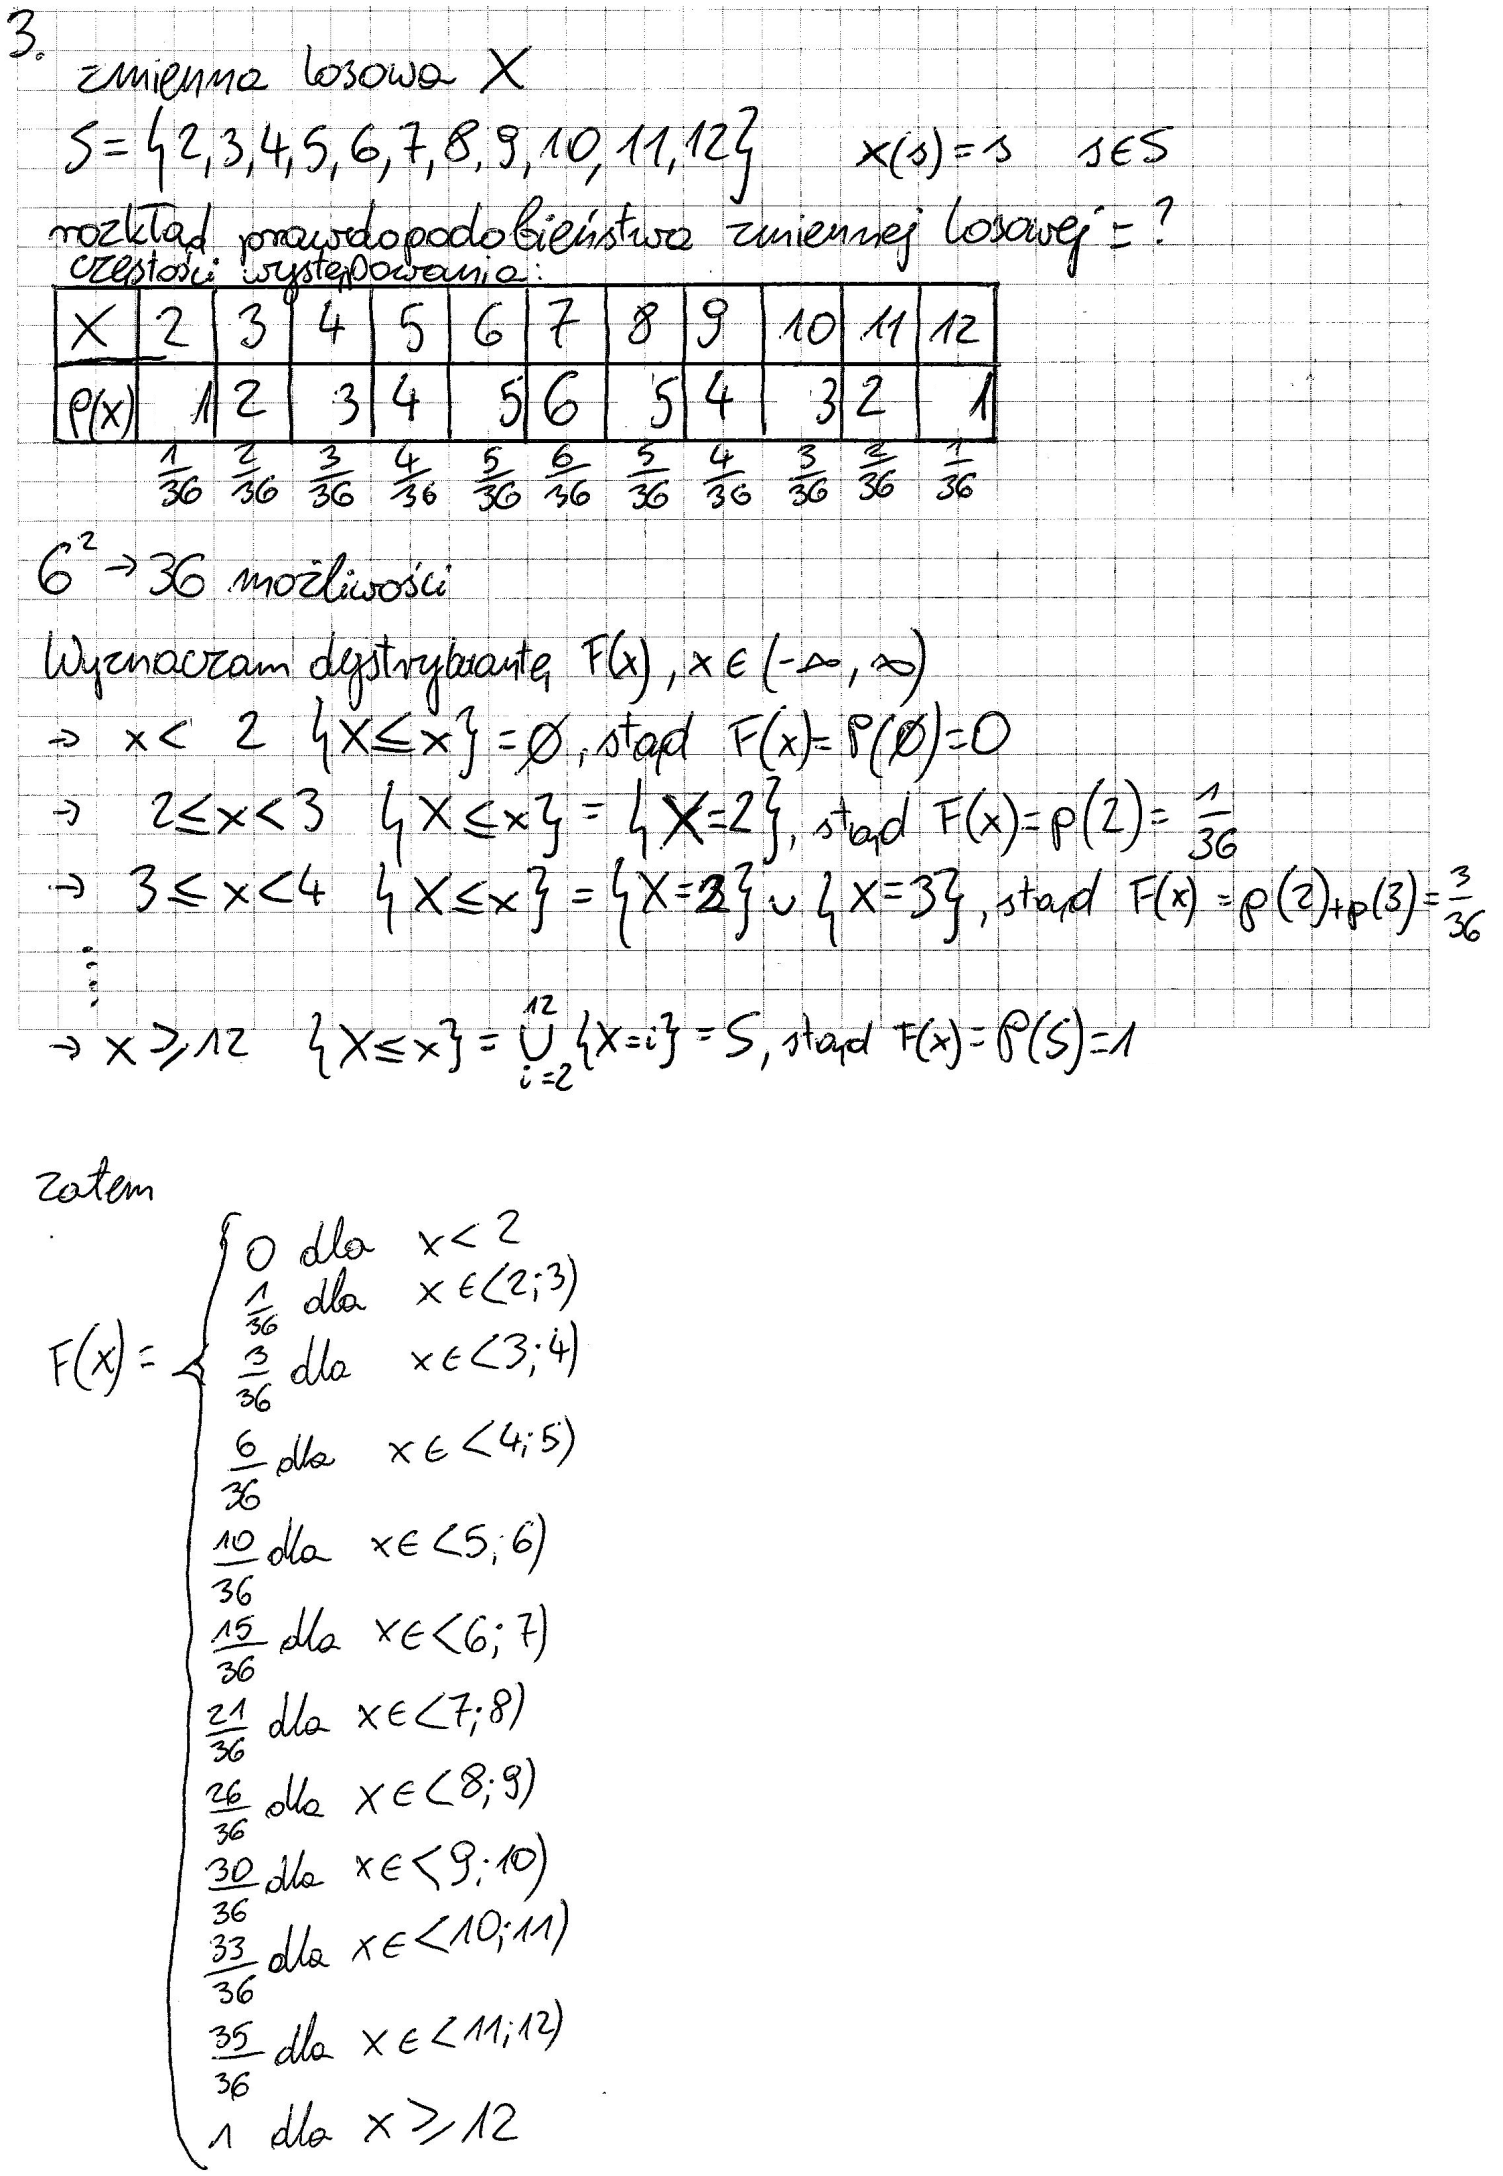 3.
zmienna losowa X
S = {2, 3, 4, 5, 6, 7, 8, 9, 10, 11, 12} x(s) = s s ∈ S
rozkład prawdopodobieństwa zmiennej losowej = ?
częstości występowania:
X 2 3 4 5 6 7 8 9 10 11 12
P(x) 1 2 3 4 5 6 5 4 3 2 1
1/36 2/36 3/36 4/36 5/36 6/36 5/36 4/36 3/36 2/36 1/36
6² → 36 możliwości
Wyznaczam dystrybuantę F(x), x ∈ (-∞, ∞)
→ x < 2 {X ≤ x} = ∅, stąd F(x) = P(∅) = 0
→ 2 ≤ x < 3 {X ≤ x} = {X = 2}, stąd F(x) = p(2) = 1/36
→ 3 ≤ x < 4 {X ≤ x} = {X = 2} ∪ {X = 3}, stąd F(x) = p(2) + p(3) = 3/36
⋮
→ x ≥ 12 {X ≤ x} = ⋃_{i=2}^{12} {X = i} = S, stąd F(x) = P(S) = 1
zatem
F(x) = {
0 dla x < 2
1/36 dla x ∈ <2; 3)
3/36 dla x ∈ <3; 4)
6/36 dla x ∈ <4; 5)
10/36 dla x ∈ <5; 6)
15/36 dla x ∈ <6; 7)
21/36 dla x ∈ <7; 8)
26/36 dla x ∈ <8; 9)
30/36 dla x ∈ <9; 10)
33/36 dla x ∈ <10; 11)
35/36 dla x ∈ <11; 12)
1 dla x ≥ 12